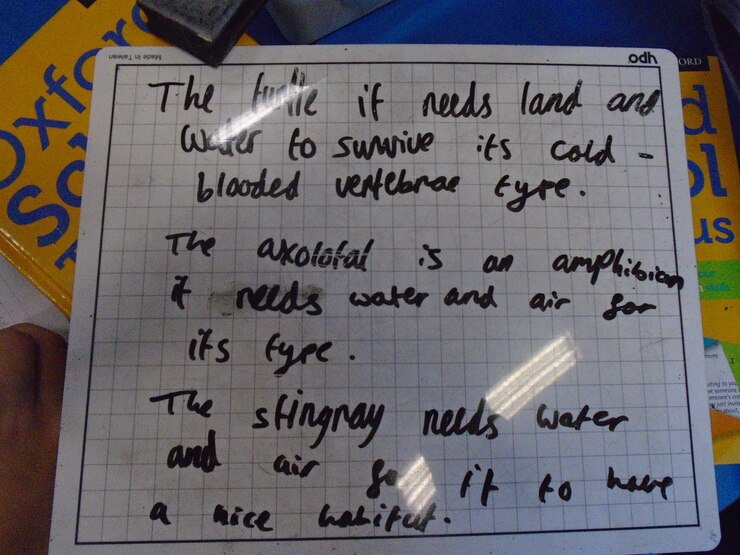 Made in Taiwan
odh
ORD
Oxford
The turtle it needs land and
water to survive its cold -
blooded vertebrae type.
The axolotal is an amphibican
it needs water and air for
its type.
The stingray needs water
and air for it to have
a nice habitat.